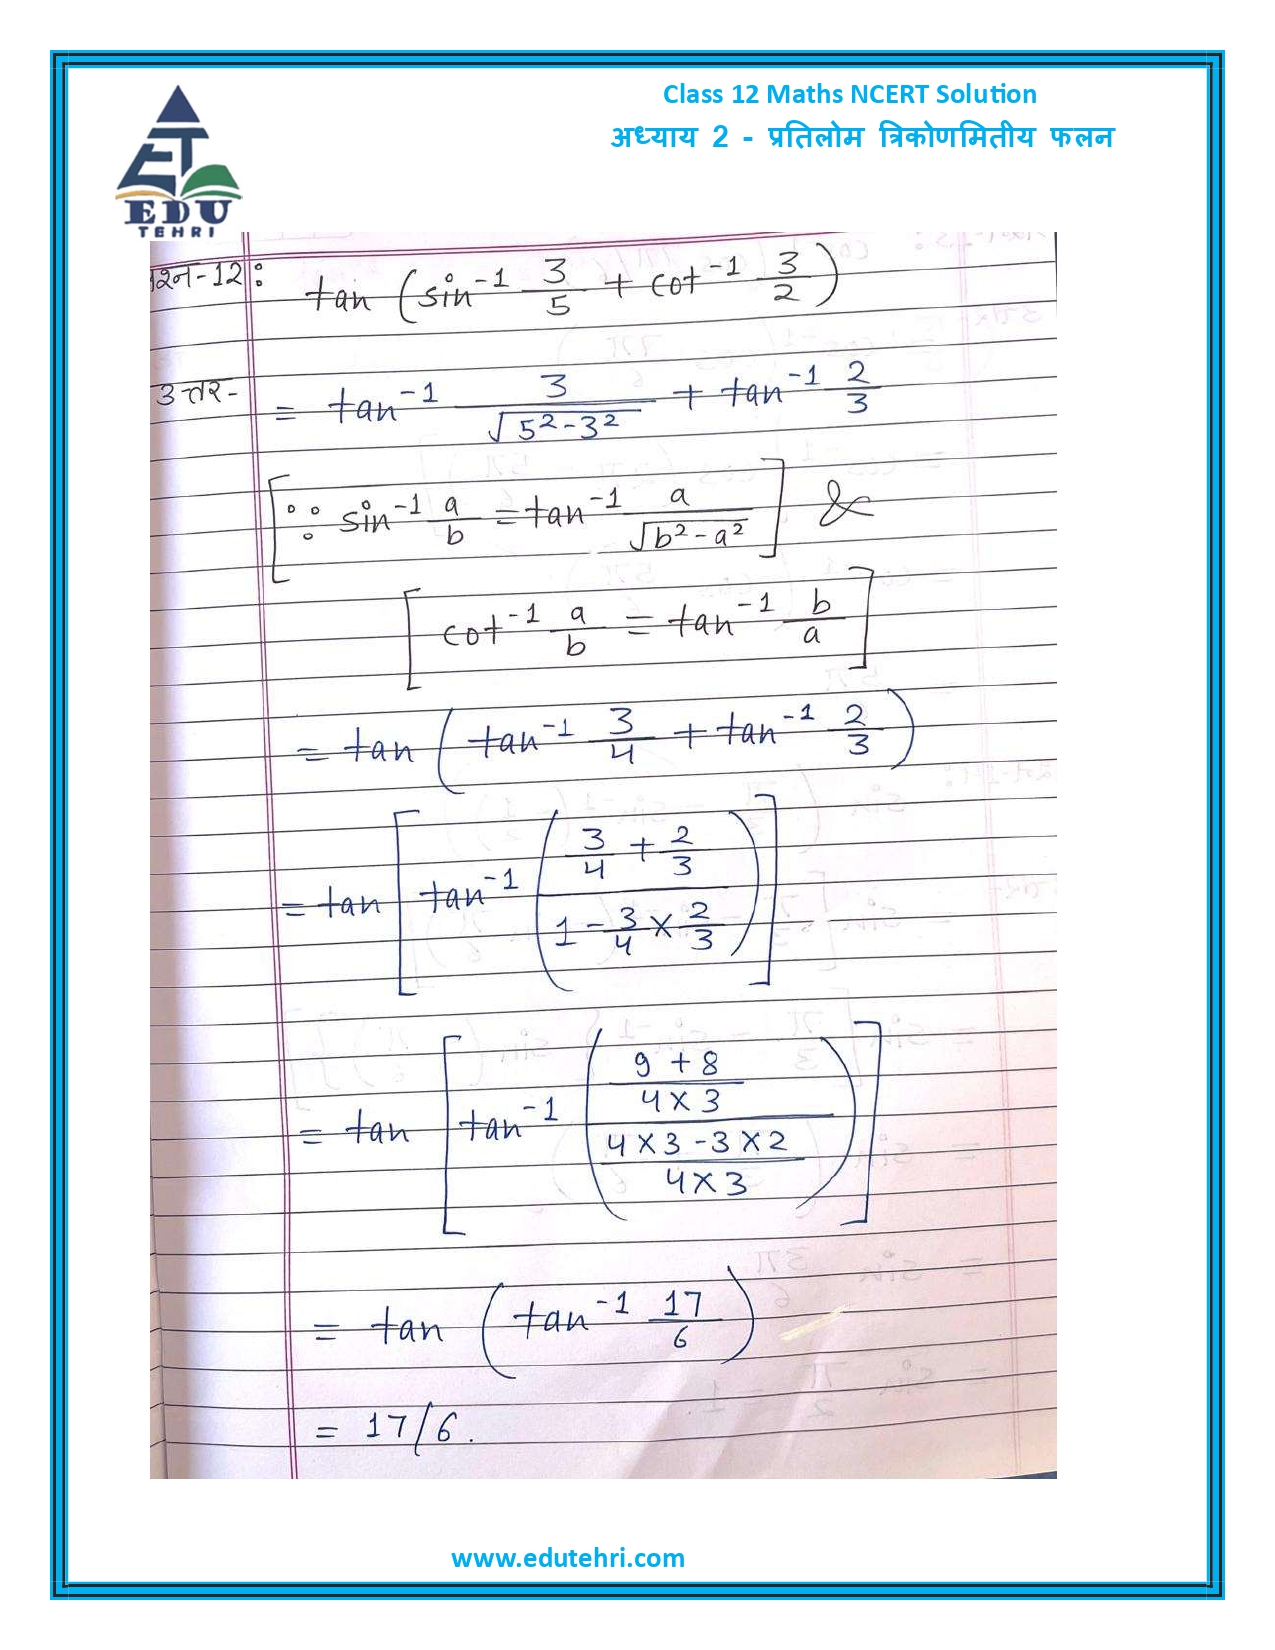 Class 12 Maths NCERT Solution
अध्याय 2 - प्रतिलोम त्रिकोणमितीय फलन
EDU
TEHRI
प्रश्न-12: tan (sin⁻¹ 3/5 + cot⁻¹ 3/2)
उत्तर- = tan⁻¹ 3/√(5²-3²) + tan⁻¹ 2/3
[∵ sin⁻¹ a/b = tan⁻¹ a/√(b²-a²)] &
[cot⁻¹ a/b = tan⁻¹ b/a]
= tan (tan⁻¹ 3/4 + tan⁻¹ 2/3)
= tan [tan⁻¹ ((3/4 + 2/3)/(1 - 3/4 × 2/3))]
= tan [tan⁻¹ (((9 + 8)/(4 × 3))/((4 × 3 - 3 × 2)/(4 × 3)))]
= tan (tan⁻¹ 17/6)
= 17/6.
www.edutehri.com